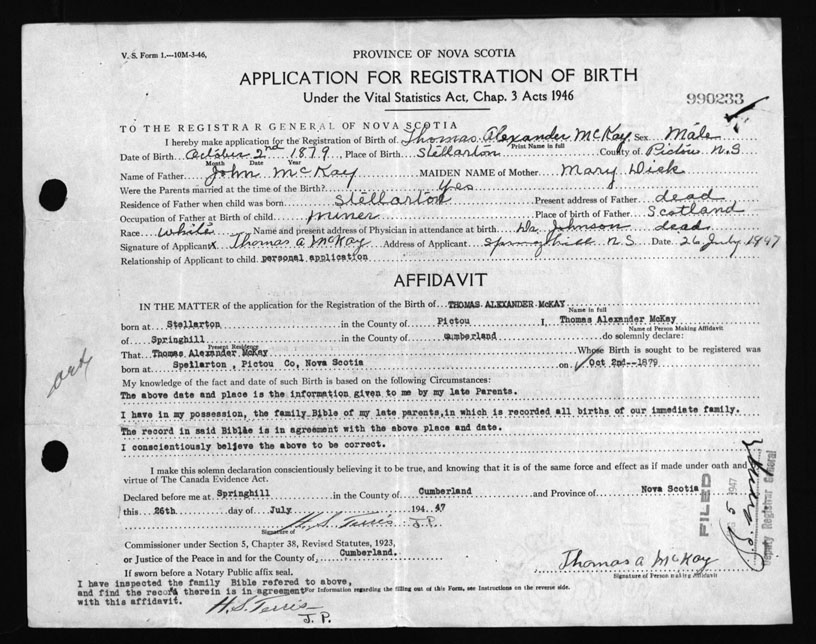 V. S. Form 1.—10M-3-46,
PROVINCE OF NOVA SCOTIA
APPLICATION FOR REGISTRATION OF BIRTH
Under the Vital Statistics Act, Chap. 3 Acts 1946
990233
TO THE REGISTRAR GENERAL OF NOVA SCOTIA
I hereby make application for the Registration of Birth of Thomas Alexander McKay Sex Male
Print Name in full
Date of Birth October 2nd 1879 Place of Birth Stellarton County of Pictou N.S
Month Date Year
Name of Father John McKay MAIDEN NAME of Mother Mary Dick
Were the Parents married at the time of the Birth? Yes
Residence of Father when child was born Stellarton Present address of Father dead
Occupation of Father at Birth of child miner Place of birth of Father Scotland
Race White Name and present address of Physician in attendance at birth Dr. Johnson dead
Signature of Applicant X Thomas A McKay Address of Applicant Springhill N.S. Date 26 July 1947
Relationship of Applicant to child personal application
AFFIDAVIT
IN THE MATTER of the application for the Registration of Birth of THOMAS ALEXANDER McKAY
Name in full
born at Stellarton in the County of Pictou I, Thomas Alexander McKay
Name of Person Making Affidavit
of Springhill in the County of Cumberland do solemnly declare:
Present Residence
That Thomas Alexander McKay Whose Birth is sought to be registered was
born at Spellarton , Pictou Co, Nova Scotia on Oct 2nd--1879
My knowledge of the fact and date of such Birth is based on the following Circumstances:
The above date and place is the information given to me by my late Parents.
I have in my possession, the family Bible of my late parents,in which is recorded all births of our immediate family.
The record in said Bible is in agreement with the above place and date.
I conscientiously believe the above to be correct.
I make this solemn declaration conscientiously believing it to be true, and knowing that it is of the same force and effect as if made under oath and
virtue of The Canada Evidence Act.
Declared before me at Springhill in the County of Cumberland and Province of Nova Scotia
this 26th day of July 194 47
H. S. Terris J.P.
Signature of
Commissioner under Section 5, Chapter 38, Revised Statutes, 1923,
or Justice of the Peace in and for the County of, Cumberland.
Thomas A McKay
Signature of Person making Affidavit
If sworn before a Notary Public affix seal.
I have inspected the family Bible refered to above,
and find the record therein is in agreement For Information regarding the filling out of this Form, see Instructions on the reverse side.
with this affidavit. H. S. Terris
J. P.
FILED
1947
Deputy Registrar General